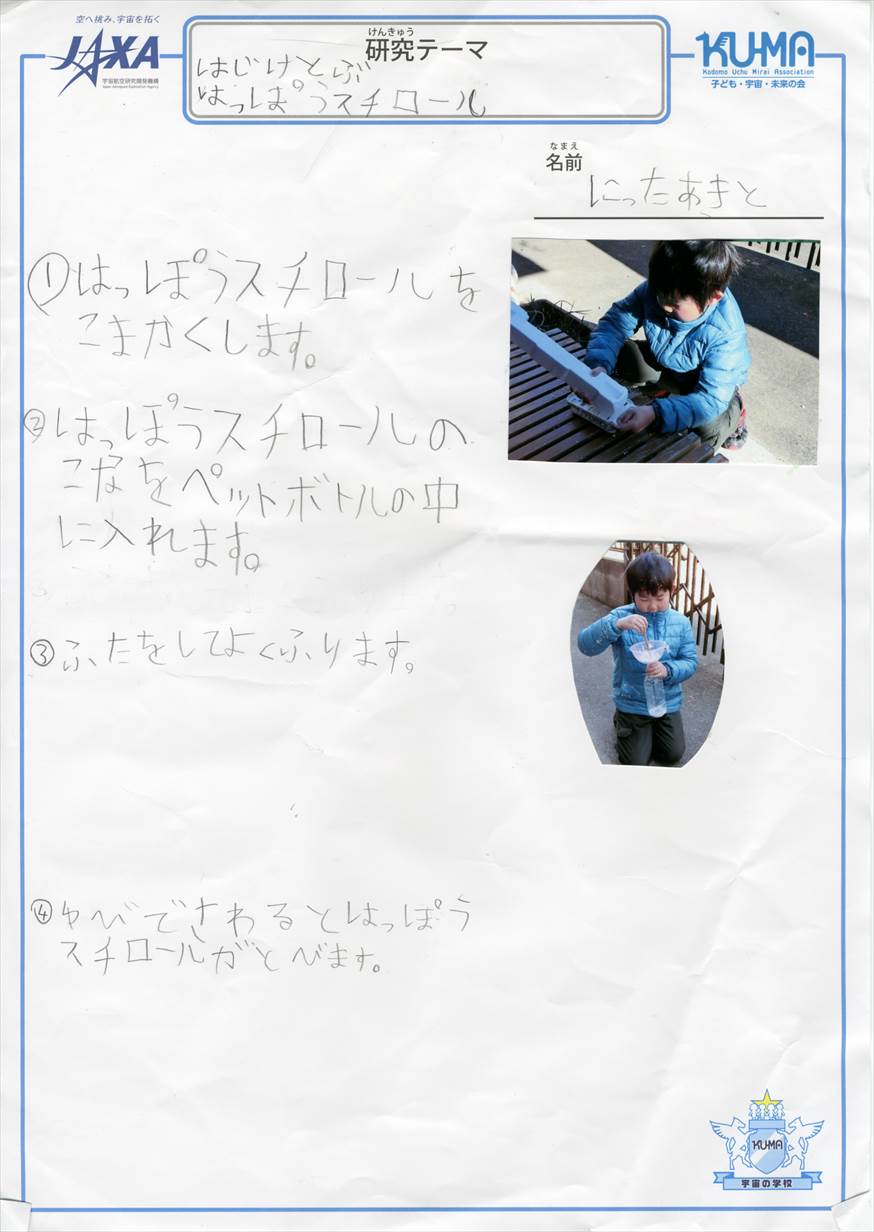 空へ挑み、宇宙を拓く
JAXA
宇宙航空研究開発機構
Japan Aerospace Exploration Agency
けんきゅう
研究テーマ
はじけとぶ
はっぽうスチロール
KU-MA
Kodomo Uchu Mirai Association
子ども・宇宙・未来の会
なまえ
名前
にったあきと
①はっぽうスチロールを
こまかくします。
②はっぽうスチロールの
こなをペットボトルの中
に入れます。
③ふたをしてよくふります。
④ゆびでさわるとはっぽう
スチロールがとびます。
KU-MA
宇宙の学校